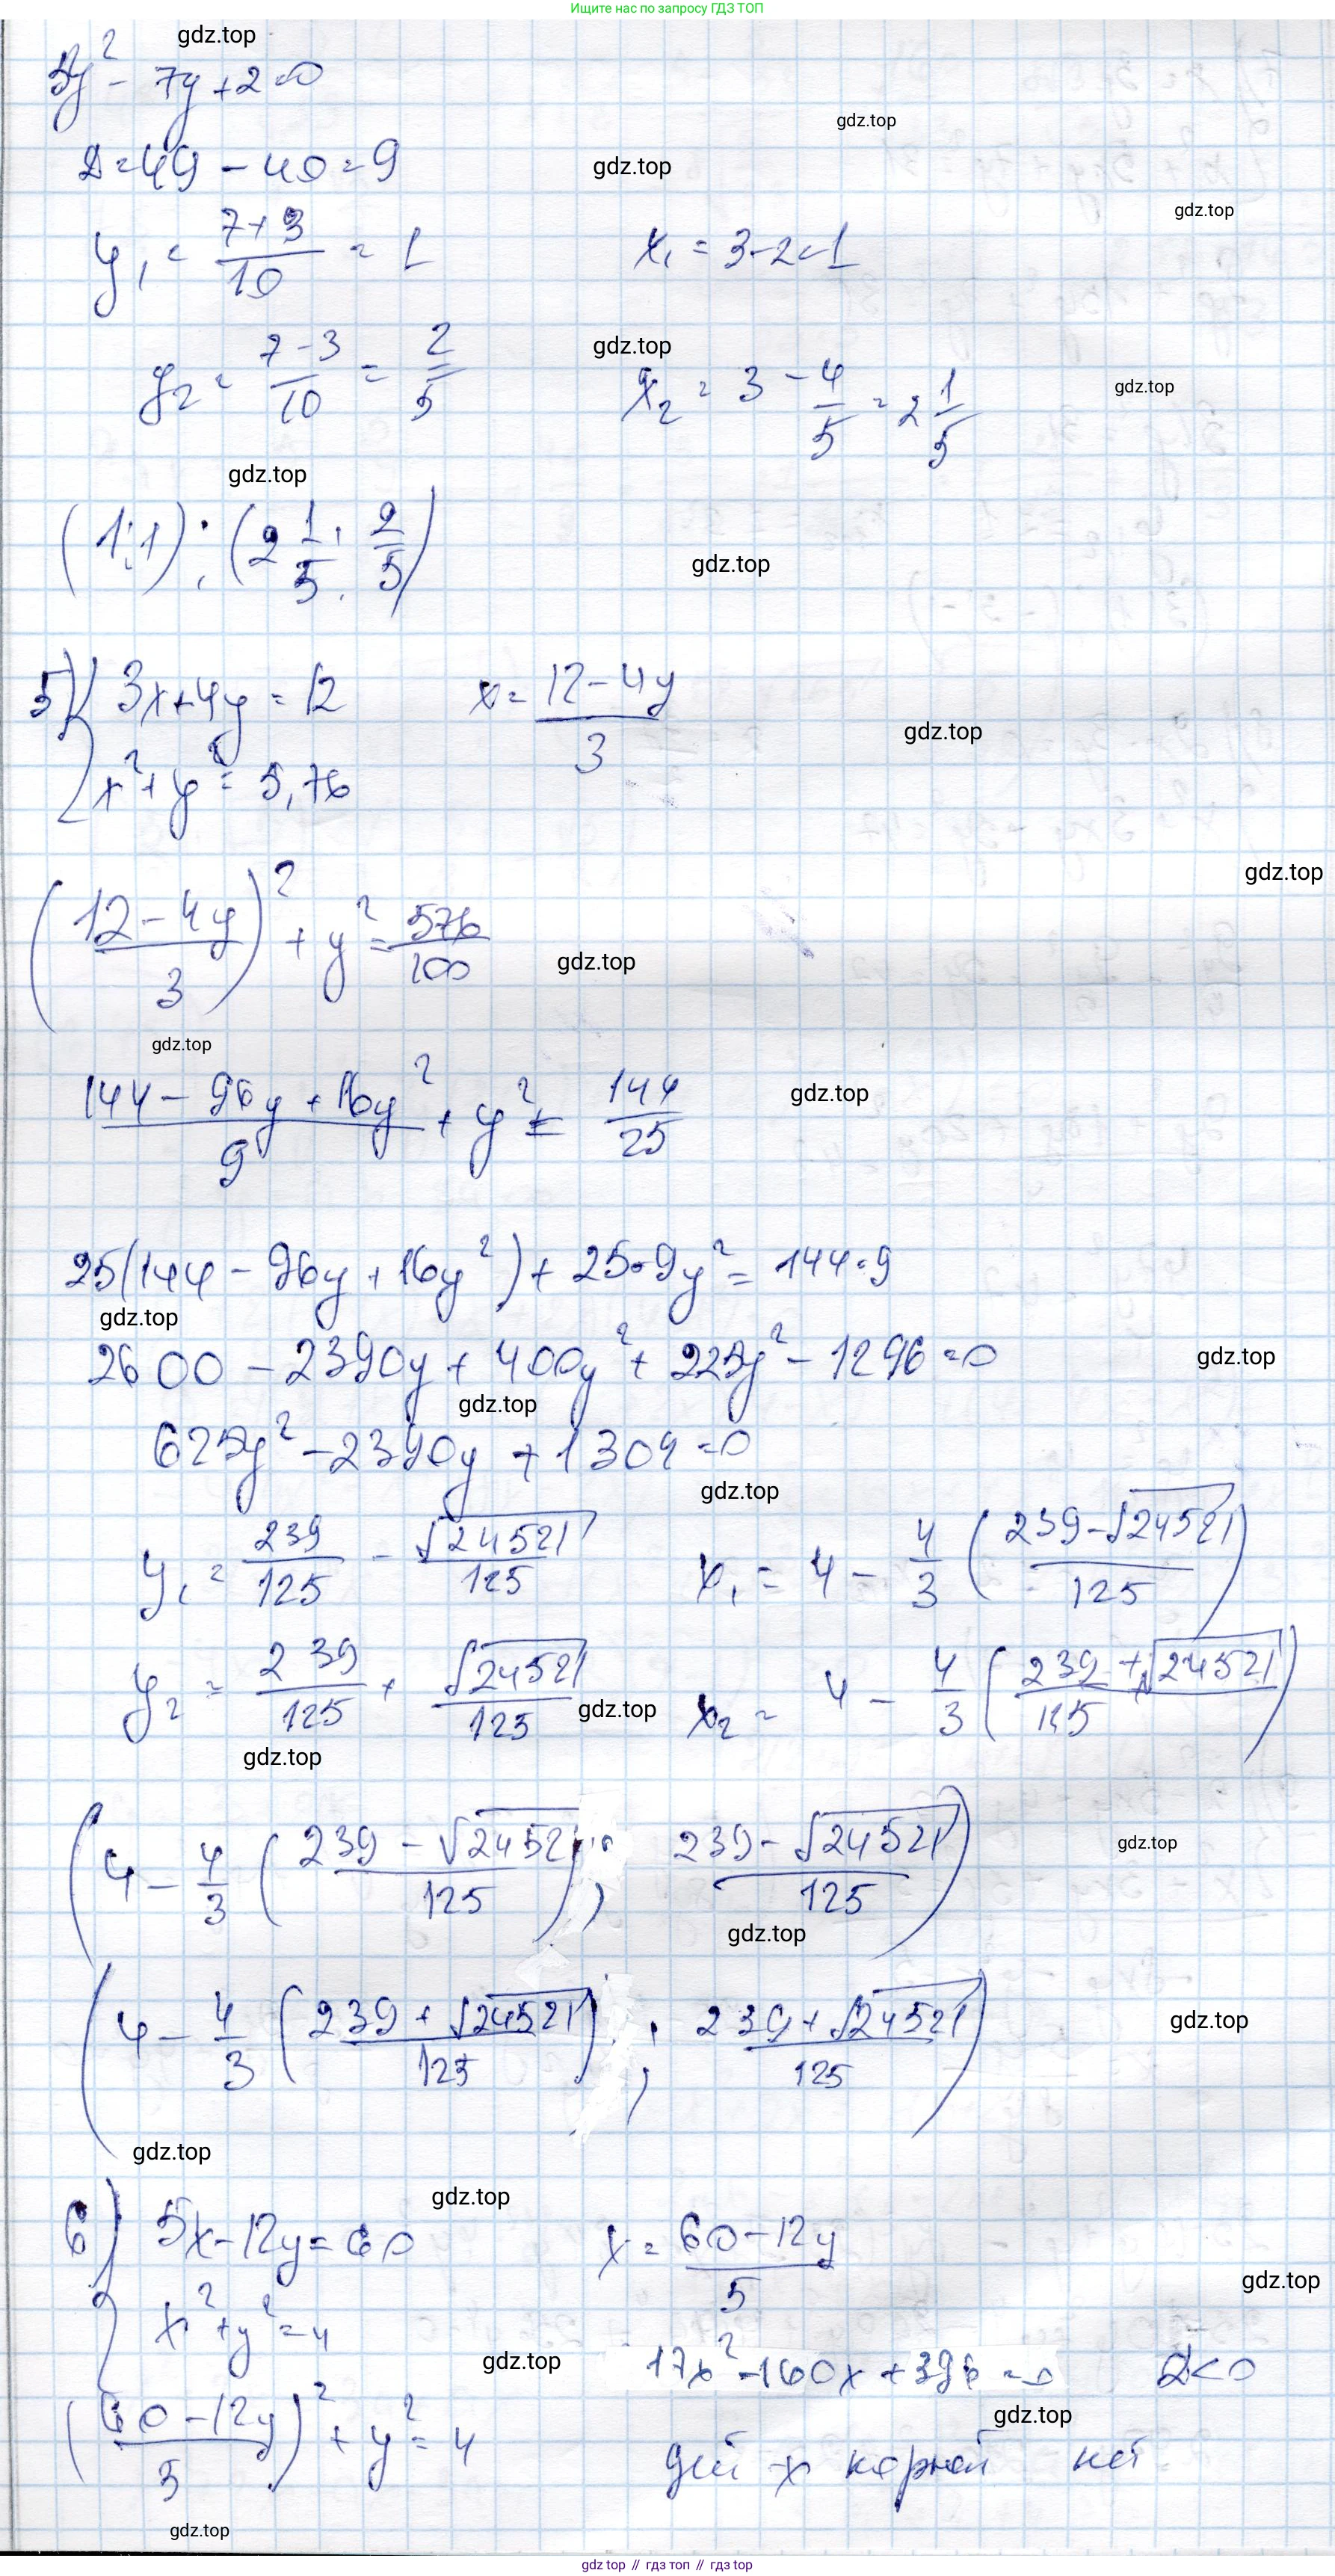 Ищите нас по запросу ГДЗ ТОП
gdz.top
5y² - 7y + 2 = 0
gdz.top
D = 49 - 40 = 9
gdz.top
gdz.top
y₁ = (7+3)/10 = 1    x₁ = 3-2=1
gdz.top
y₂ = (7-3)/10 = 2/5    x₂ = 3 - 4/5 = 2 1/5
gdz.top
gdz.top
(1;1); (2 1/5; 2/5)
gdz.top
5) { 3x+4y = 12    x = (12-4y)/3
gdz.top
x²+y² = 5,76
gdz.top
((12-4y)/3)² + y² = 576/100
gdz.top
gdz.top
(144 - 96y + 16y²)/9 + y² = 144/25
gdz.top
25(144 - 96y + 16y²) + 25·9y² = 144·9
gdz.top
2600 - 2390y + 400y² + 225y² - 1296 = 0
gdz.top
gdz.top
625y² - 2390y + 1304 = 0
gdz.top
y₁ = 239/125 - √24521/125    x₁ = 4 - 4/3 ((239-√24521)/125)
y₂ = 239/125 + √24521/125    x₂ = 4 - 4/3 ((239+√24521)/125)
gdz.top
gdz.top
(4 - 4/3 ((239 - √24521)/125); (239 - √24521)/125)
gdz.top
gdz.top
(4 - 4/3 ((239 + √24521)/125); (239 + √24521)/125)
gdz.top
gdz.top
gdz.top
6) { 5x-12y = 60    x = (60-12y)/5
gdz.top
x²+y² = 4
gdz.top
17x²-160x+396=0    D<0
gdz.top
((60-12y)/5)² + y² = 4
дей-х корней нет
gdz.top
gdz.top // гдз топ // гдз top